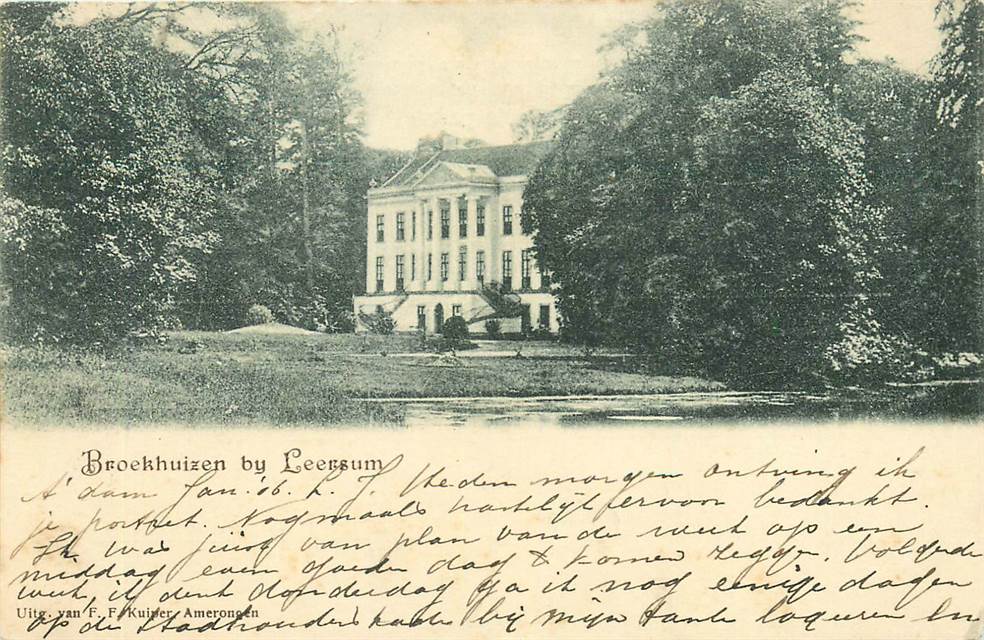 Broekhuizen by Leersum
A'dam Jan. '06. L. J. Heden morgen ontving ik
je portret. Nogmaals hartelijk ervoor bedankt.
Ik was juist van plan van de week op een
middag even goeden dag te komen zeggen. Volgende
week, ik denk donderdag ga ik nog eenige dagen
Uitg. van F. F. Kuiper, Amerongen
op de Stadhouderskade bij mijn tante logeeren en